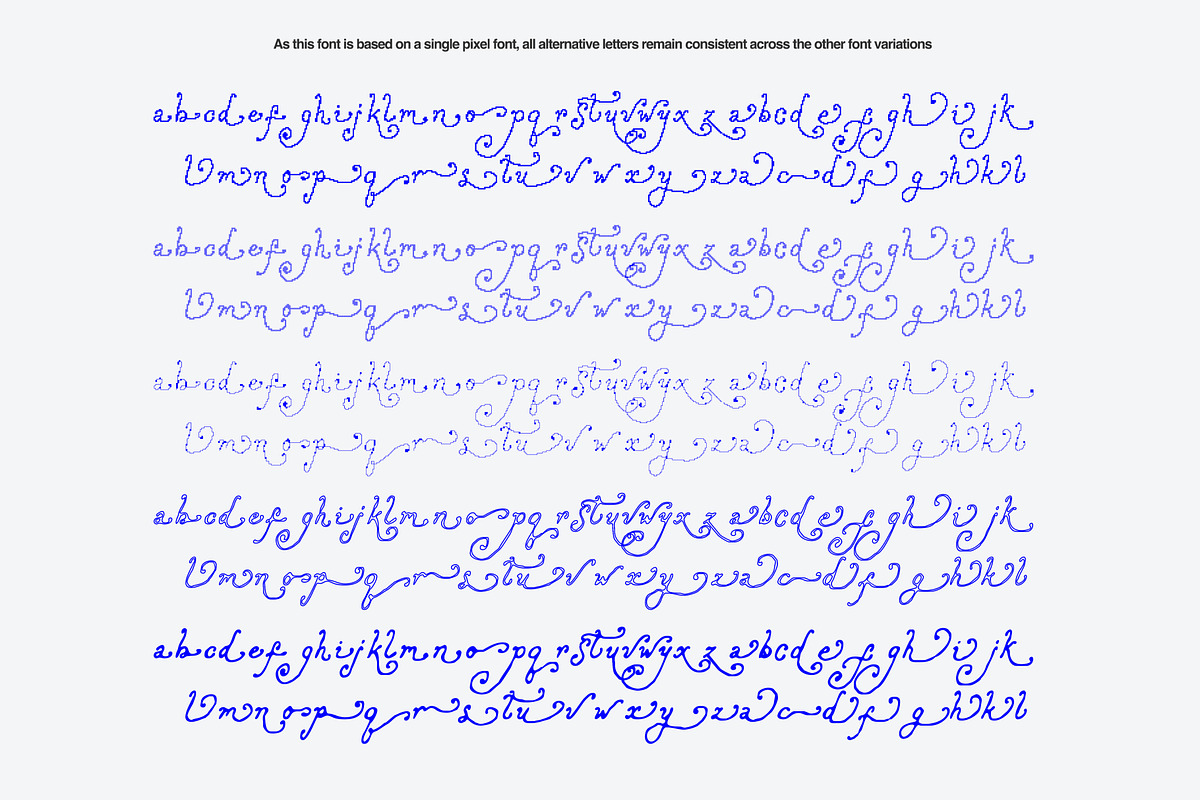 As this font is based on a single pixel font, all alternative letters remain consistent across the other font variations
abcdef ghijklmno pq rstuvwyx z abcd e f gh i jk
lmn op q r s tu v w xy z a c d f g h k l
abcdef ghijklmno pq rstuvwyx z abcd e f gh i jk
lmn op q r s tu v w xy z a c d f g h k l
abcdef ghijklmno pq rstuvwyx z abcd e f gh i jk
lmn op q r s tu v w xy z a c d f g h k l
abcdef ghijklmno pq rstuvwyx z abcd e f gh i jk
lmn op q r s tu v w xy z a c d f g h k l
abcdef ghijklmno pq rstuvwyx z abcd e f gh i jk
lmn op q r s tu v w xy z a c d f g h k l